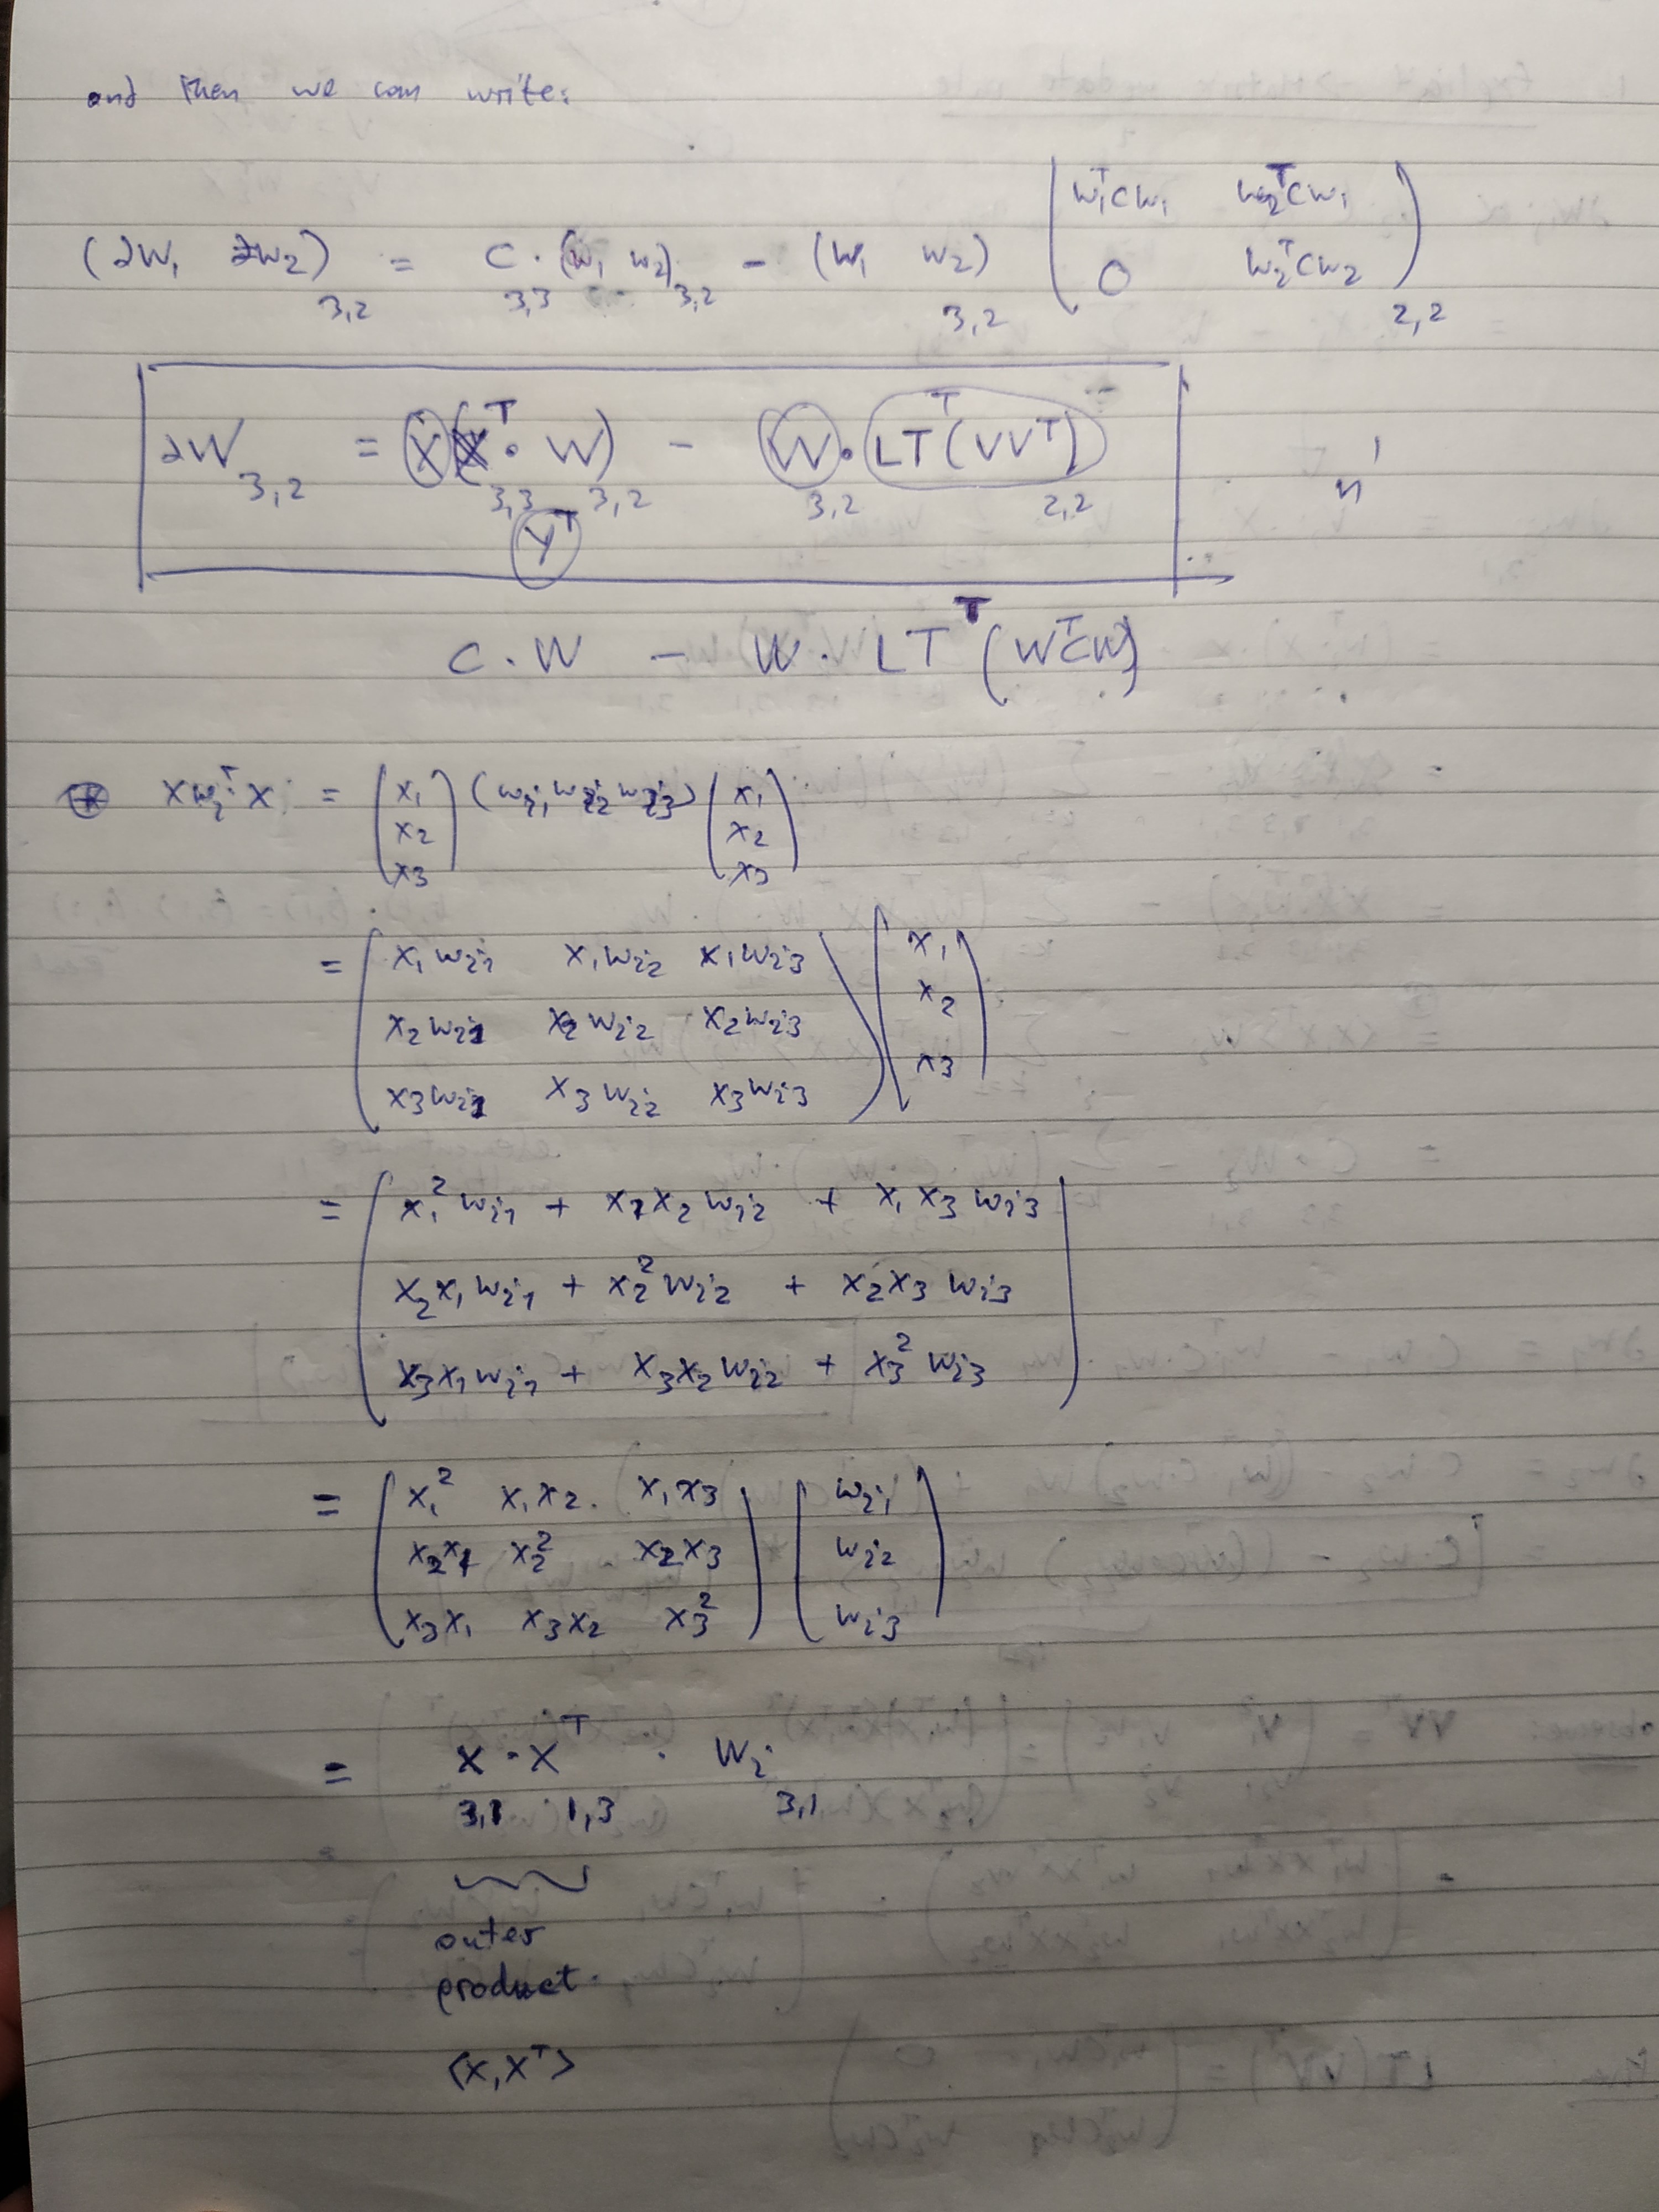 and then we can write:
(∂W₁ ∂W₂)₃,₂ = C₃,₃ · (W₁ W₂)₃,₂ − (W₁ W₂)₃,₂ ( W₁ᵀCW₁ W₂ᵀCW₁ ; 0 W₂ᵀCW₂ )₂,₂
∂W₃,₂ = X(Xᵀ · W) − W · LTᵀ(VVᵀ)
3,3 3,2 3,2 2,2
Yᵀ
C · W − W · LTᵀ(WᵀCW)
⊛ XWᵢᵀX = ( x₁ ; x₂ ; x₃ ) (wᵢ₁ wᵢ₂ wᵢ₃) ( x₁ ; x₂ ; x₃ )
= ( x₁wᵢ₁ x₁wᵢ₂ x₁wᵢ₃ ; x₂wᵢ₁ x₂wᵢ₂ x₂wᵢ₃ ; x₃wᵢ₁ x₃wᵢ₂ x₃wᵢ₃ ) ( x₁ ; x₂ ; x₃ )
= ( x₁²wᵢ₁ + x₁x₂wᵢ₂ + x₁x₃wᵢ₃ ; x₂x₁wᵢ₁ + x₂²wᵢ₂ + x₂x₃wᵢ₃ ; x₃x₁wᵢ₁ + x₃x₂wᵢ₂ + x₃²wᵢ₃ )
= ( x₁² x₁x₂ x₁x₃ ; x₂x₁ x₂² x₂x₃ ; x₃x₁ x₃x₂ x₃² ) ( wᵢ₁ ; wᵢ₂ ; wᵢ₃ )
= X · Xᵀ · Wᵢ
3,1 1,3 3,1
outer
product.
⟨X, Xᵀ⟩